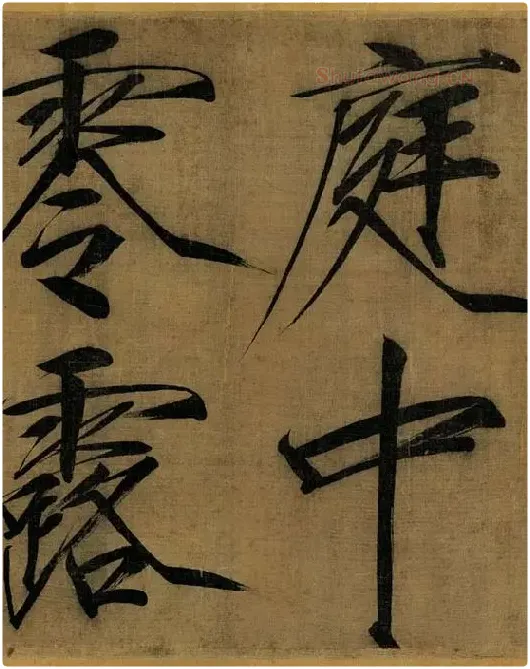 庭中
零露